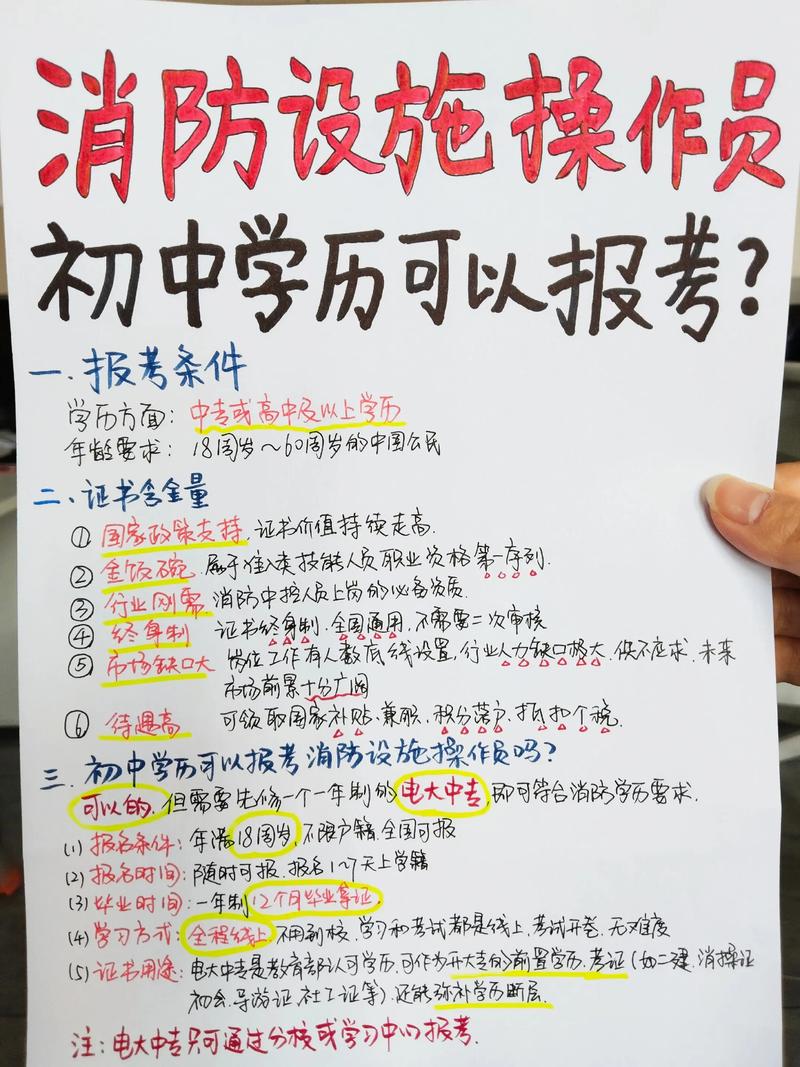 消防设施操作员
初中学历可以报考?
一、报考条件
学历方面: 中专或高中及以上学历
年龄要求: 18周岁~60周岁的中国公民
二、证书含金量
① 国家政策支持,证书价值持续走高.
② 金饭碗. 属于准入类技能人员职业资格第一序列.
③ 行业刚需. 消防中控人员上岗的必备资质.
④ 终身制 证书终身制.全国通用.不需要二次审核
⑤ 市场缺口大 岗位工作有人数底线设置,行业人力缺口极大.供不应求.未来
市场前景十分广阔
⑥ 待遇高 可领取国家补贴.兼职.积分落户.抵扣个税.
三.初中学历可以报考消防设施操作员吗?
可以的.但需要先修一个一年制的电大中专,即可符合消防学历要求.
(1) 报名条件: 年满18周岁,不限户籍.全国可报
(2) 报名时间: 随时可报.报名1~7天上学籍
(3) 毕业时间: 一年制12个月毕业拿证.
(4) 学习方式: 全程线上.不用到校.学习和考试都是线上.考试开卷.无难度
(5) 证书用途: 电大中专是教育部认可学历.可作为升大专的前置学历.考证(如二建.消操证
初会.导游证.社工证等).还能弥补学历断层.
注: 电大中专只可通过分校或学习中心报考.